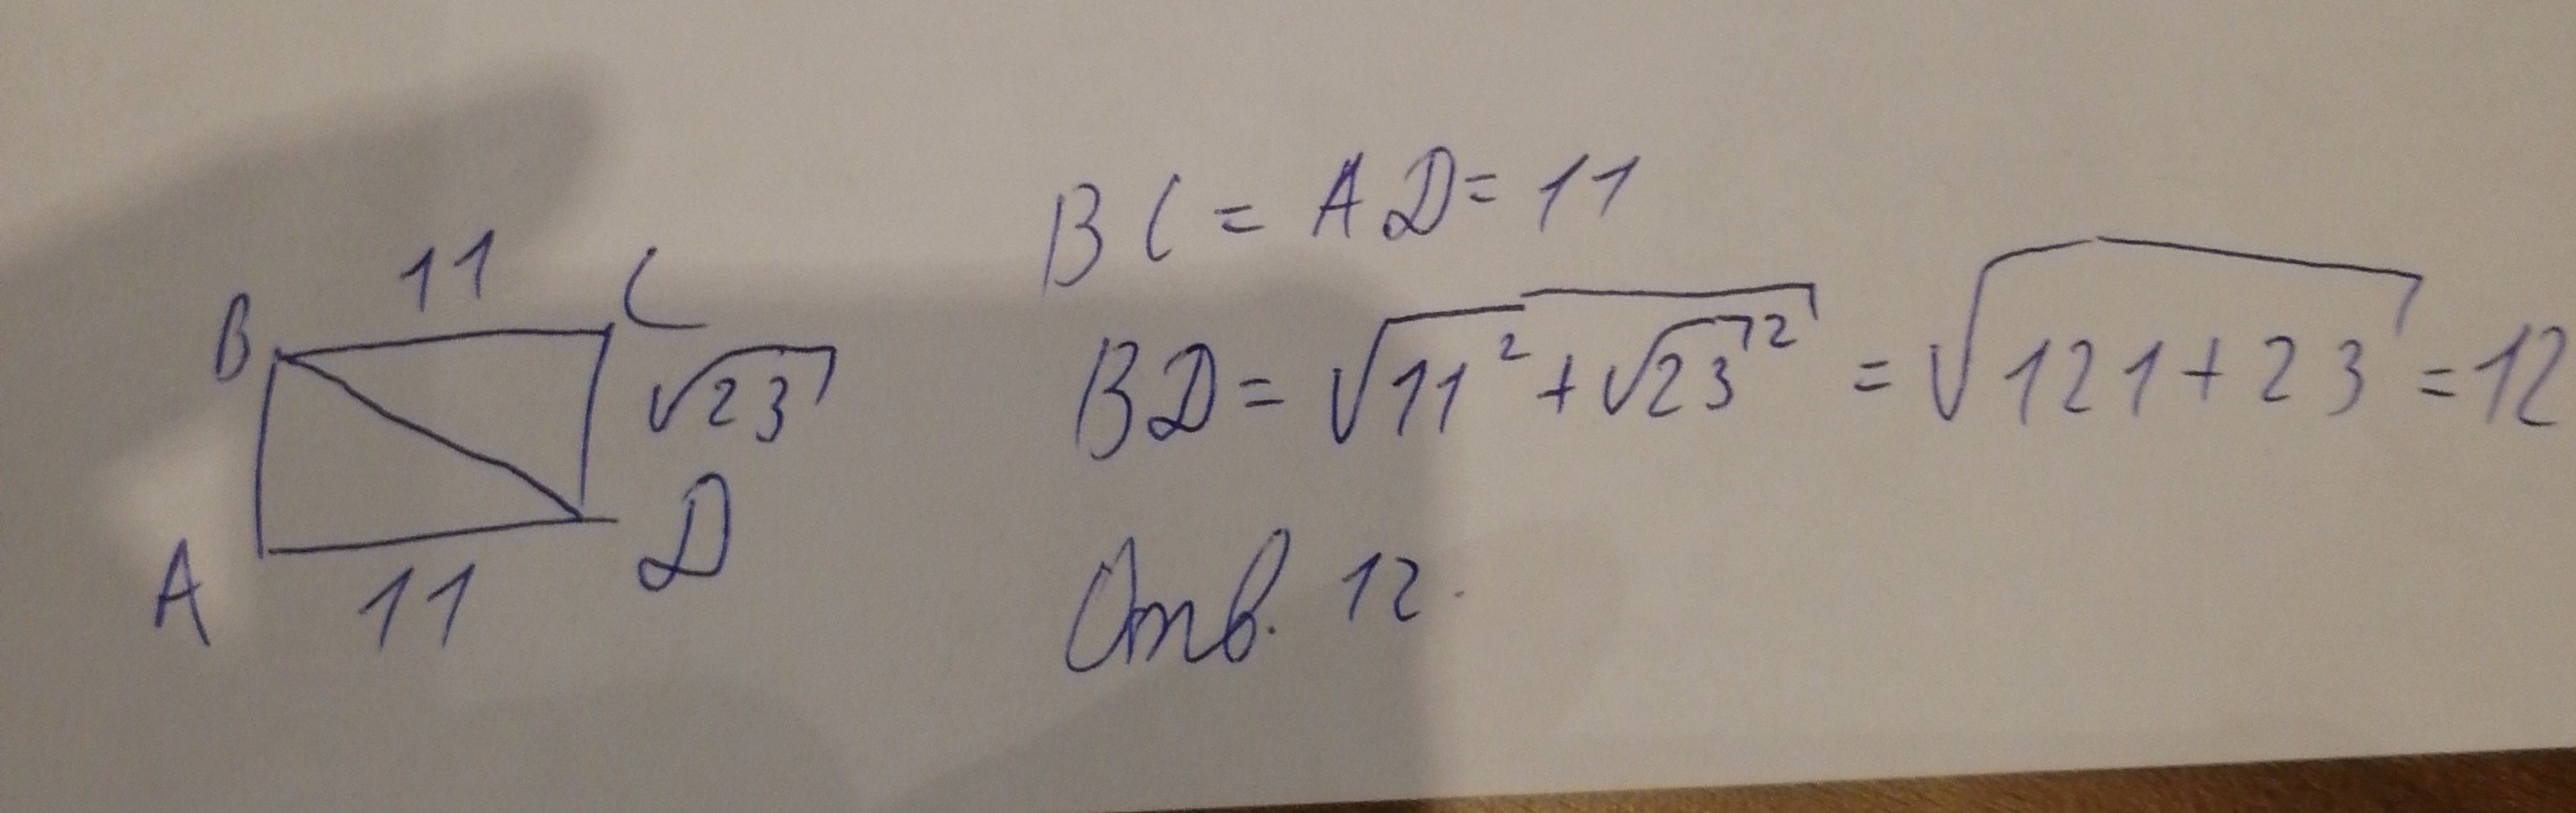 11
B
C
√23
A
11
D
BC = AD = 11
BD = √11² + √23² = √121 + 23 = 12
Отв. 12.